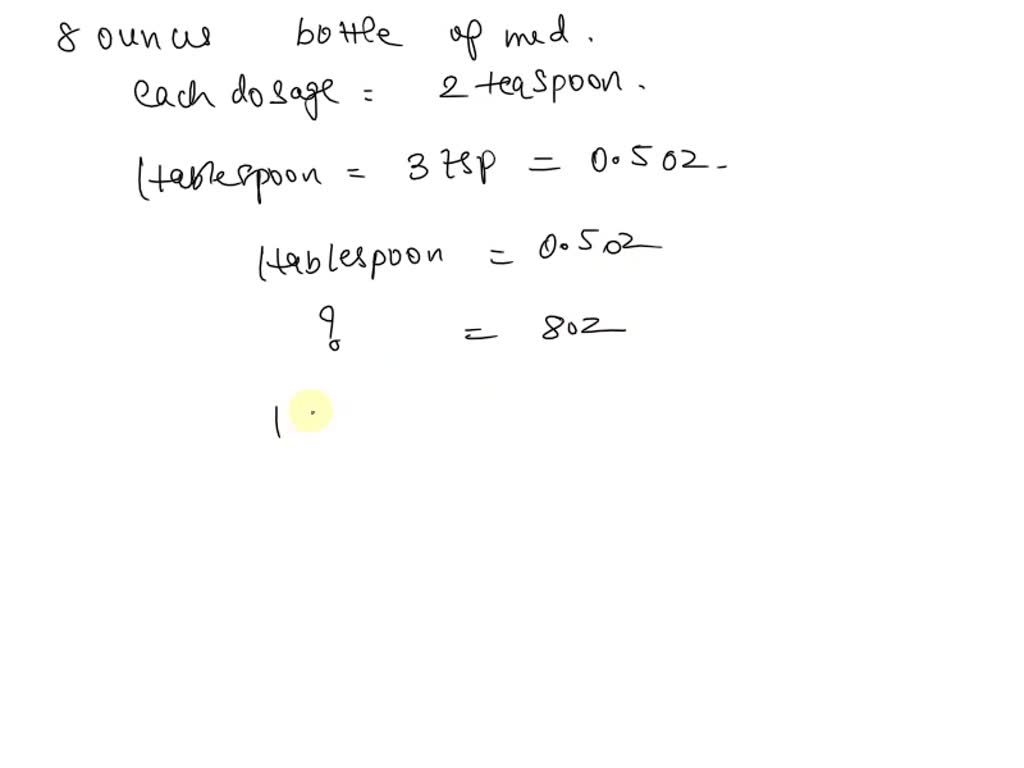 8 ounces bottle of med.
each dosage = 2 teaspoon.
1 tablespoon = 3 tsp = 0.5 oz.
1 tablespoon = 0.5 oz
? = 8 oz
1